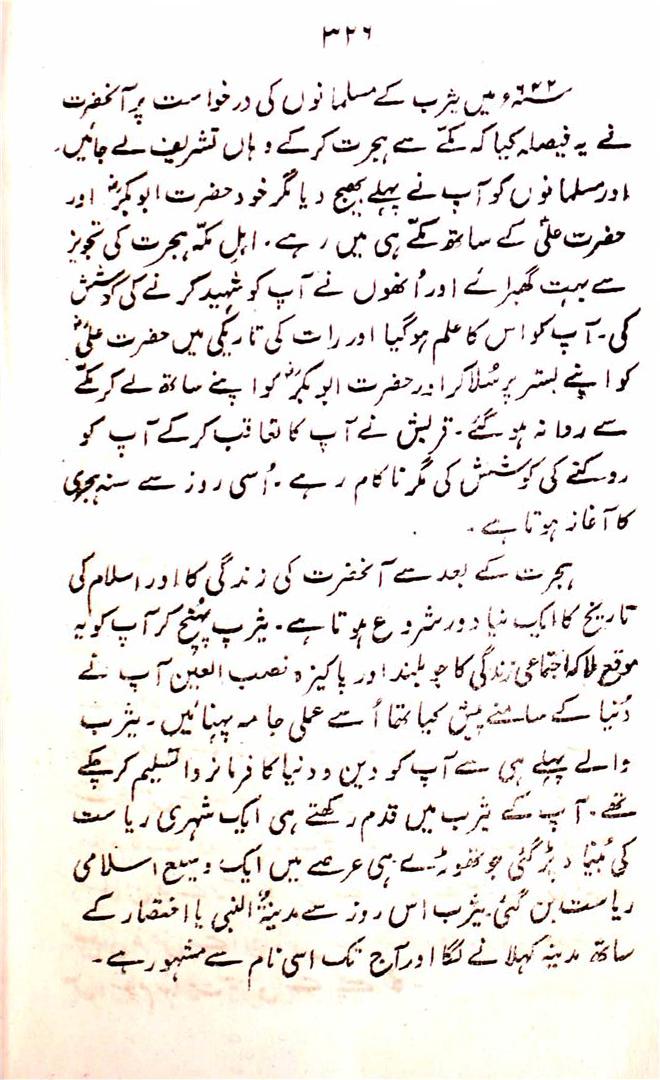 ۳۲۶
۶۲۲ء میں یثرب کے مسلمانوں کی درخواست پر آنحضرت
نے یہ فیصلہ کیا کہ مکّے سے ہجرت کرکے وہاں تشریف لے جائیں۔
اور مسلمانوں کو آپ نے پہلے بھیج دیا مگر خود حضرت ابوبکرؓ اور
حضرت علیؓ کے ساتھ مکّے ہی میں رہے۔ اہلِ مکّہ ہجرت کی تجویز
سے بہت گھبرائے اور اُنھوں نے آپ کو شہید کرنے کی کوشش
کی۔ آپ کو اس کا علم ہوگیا اور رات کی تاریکی میں حضرت علیؓ
کو اپنے بستر پر سُلا کر اور حضرت ابوبکرؓ کو اپنے ساتھ لے کر مکّے
سے روانہ ہوگئے۔ قریش نے آپ کا تعاقب کرکے آپ کو
روکنے کی کوشش کی مگر ناکام رہے۔ اُسی روز سے سنہ ہجری
کا آغاز ہوتا ہے۔
ہجرت کے بعد سے آنحضرت کی زندگی کا اور اسلام کی
تاریخ کا ایک نیا دور شروع ہوتا ہے۔ یثرب پہنچ کر آپ کو یہ
موقع ملا کہ اجتماعی زندگی کا جو بلند اور پاکیزہ نصب العین آپ نے
دُنیا کے سامنے پیش کیا تھا اُسے عملی جامہ پہنائیں۔ یثرب
والے پہلے ہی سے آپ کو دین و دنیا کا فرمانروا تسلیم کرچکے
تھے۔ آپ کے یثرب میں قدم رکھتے ہی ایک شہری ریاست
کی بُنیاد پڑگئی جو تھوڑے ہی عرصے میں ایک وسیع اسلامی
ریاست بن گئی۔ یثرب اس روز سے مدینۃُ النبی یا اختصار کے
ساتھ مدینہ کہلانے لگا اور آج تک اسی نام سے مشہور ہے۔